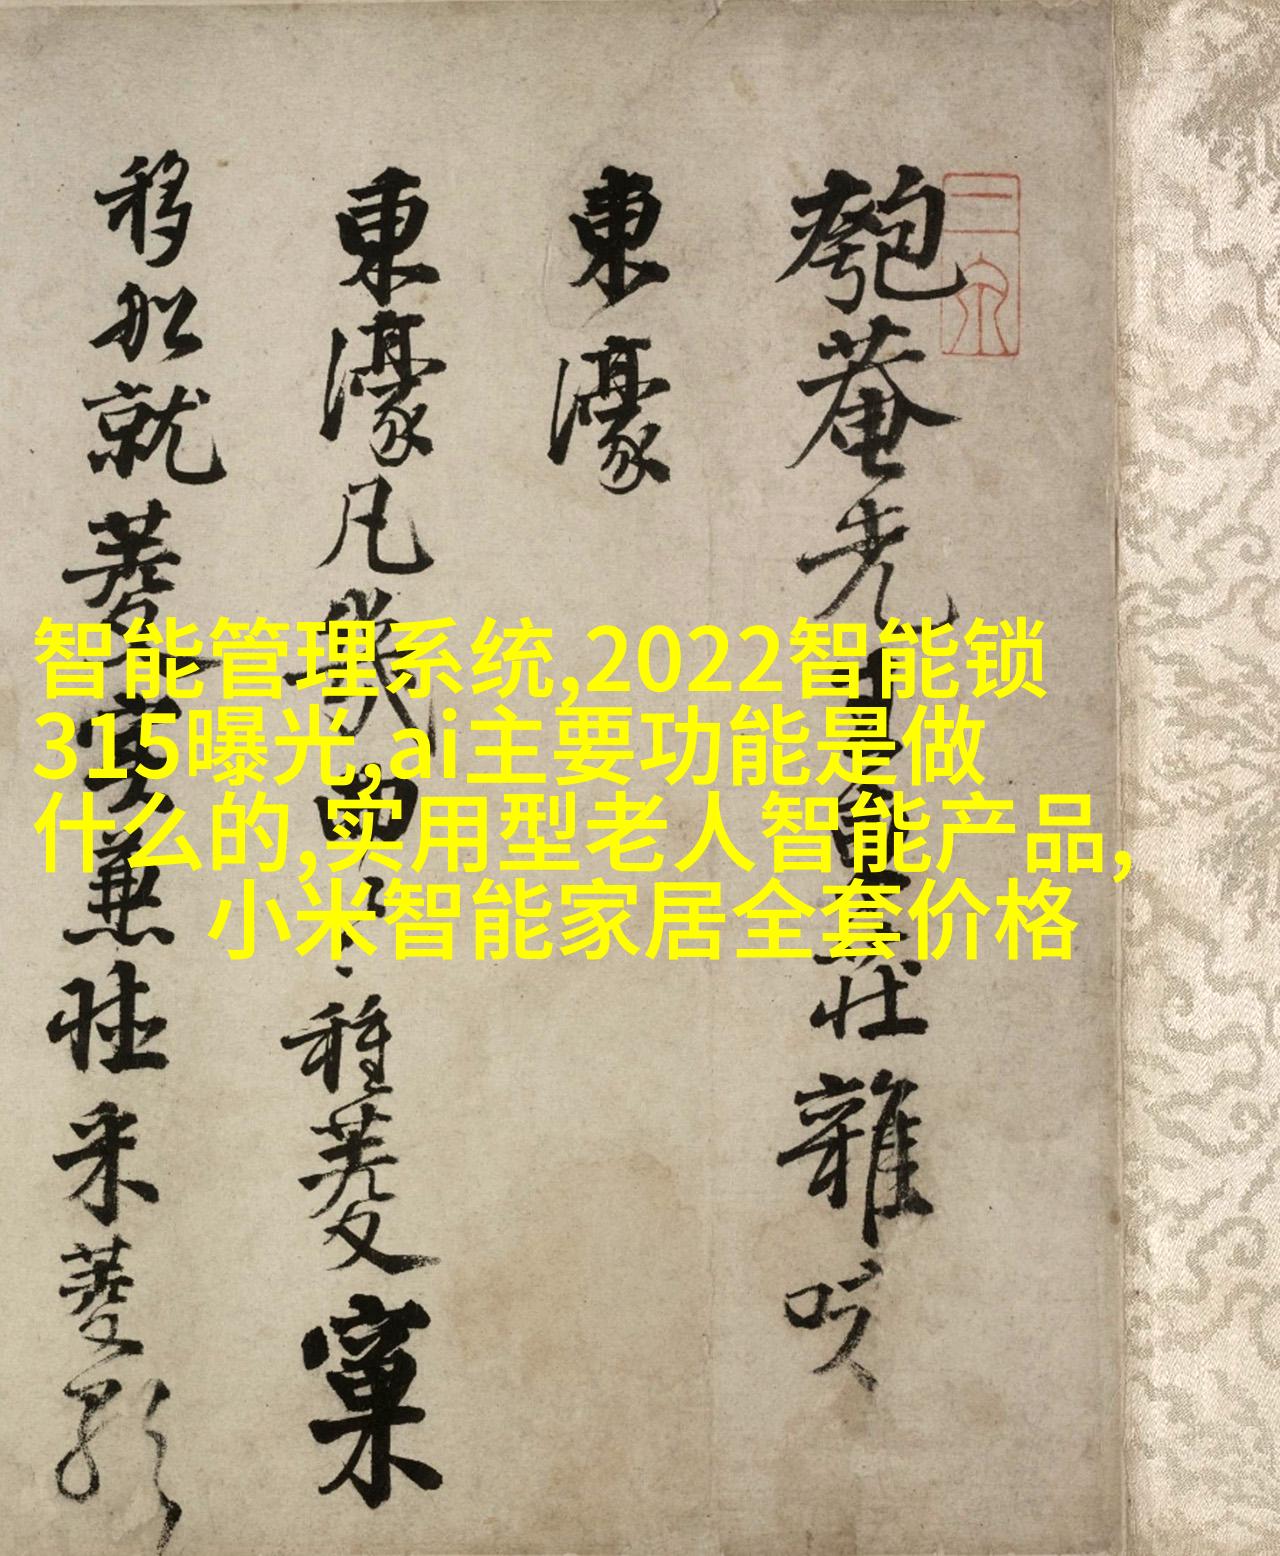 匏菴先莊雜咏
東濠
東濠凡幾曲種菱窠
移船就菱采菱
智能管理系统,2022智能锁
315曝光,ai主要功能是做
什么的,实用型老人智能产品,
小米智能家居全套价格